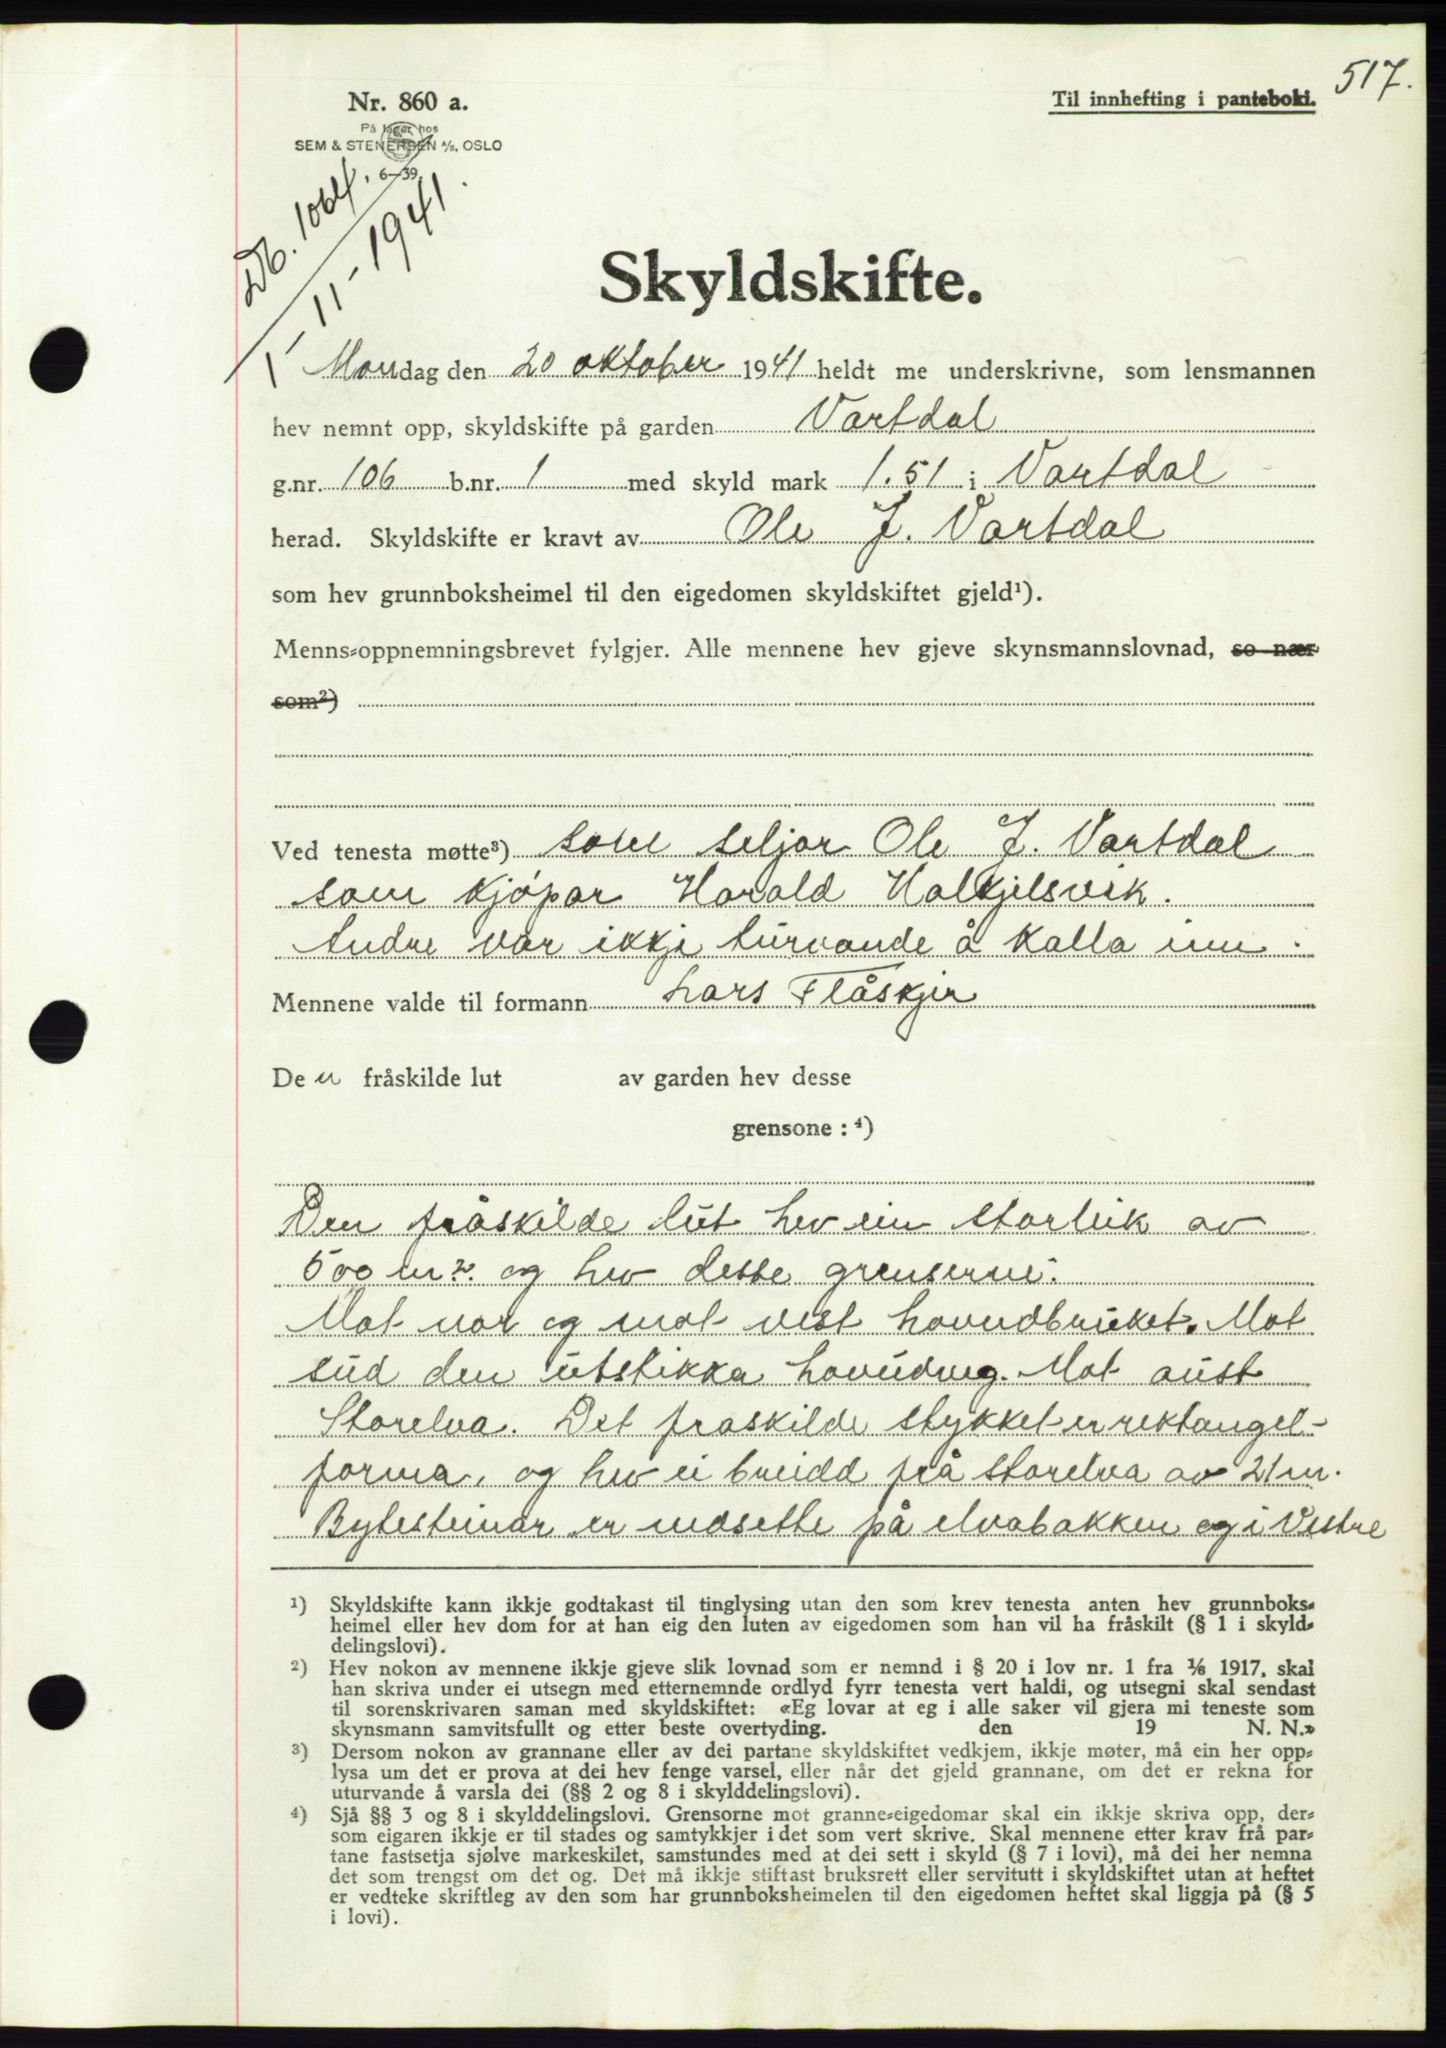 517.
Nr. 860 a.
Til innhefting i panteboki.
På lager hos
SEM & STENERSEN A/S, OSLO
6—39.
Db. 1064.
1 - 11 - 1941.
Skyldskifte.
Mondag den 20 oktober 1941 heldt me underskrivne, som lensmannen
hev nemnt opp, skyldskifte på garden Vartdal
g.nr. 106 b.nr. 1 med skyld mark 1.51 i Vartdal
herad. Skyldskifte er kravt av Ole J. Vartdal
som hev grunnboksheimel til den eigedomen skyldskiftet gjeld¹).
Menns-oppnemningsbrevet fylgjer. Alle mennene hev gjeve skynsmannslovnad, so nær
som²)
Ved tenesta møtte³) som seljar Ole J. Vartdal
som kjøpar Harald Halkjelsvik.
Andre var ikkje turvande å kalla inn.
Mennene valde til formann Lars Flåskjer
De n fråskilde lut av garden hev desse
grensone : ⁴)
Den fråskilde lut hev ein storleik av
500 m². og hev desse grensorne:
Mot nor og mot vest hovudbruket. Mot
sud den utstikka hovudveg. Mot aust
Storelva. Det fraskilde stykket er rektangel-
forma, og hev ei breidd frå storelva av 21 m.
Bytesteinar er nedsette på elvabakken og i Vestre
¹) Skyldskifte kann ikkje godtakast til tinglysing utan den som krev tenesta anten hev grunnboks-
heimel eller hev dom for at han eig den luten av eigedomen som han vil ha fråskilt (§ 1 i skyld-
delingslovi).
²) Hev nokon av mennene ikkje gjeve slik lovnad som er nemnd i § 20 i lov nr. 1 fra 1/6 1917, skal
han skriva under ei utsegn med etternemnde ordlyd fyrr tenesta vert haldi, og utsegni skal sendast
til sorenskrivaren saman med skyldskiftet: «Eg lovar at eg i alle saker vil gjera mi teneste som
skynsmann samvitsfullt og etter beste overtyding. den 19 N. N.»
³) Dersom nokon av grannane eller av dei partane skyldskiftet vedkjem, ikkje møter, må ein her opp-
lysa um det er prova at dei hev fenge varsel, eller når det gjeld grannane, om det er rekna for
uturvande å varsla dei (§§ 2 og 8 i skylddelingslovi).
⁴) Sjå §§ 3 og 8 i skylddelingslovi. Grensorne mot granne-eigedomar skal ein ikkje skriva opp, der-
som eigaren ikkje er til stades og samtykkjer i det som vert skrive. Skal mennene etter krav frå par-
tane fastsetja sjølve markeskilet, samstundes med at dei sett i skyld (§ 7 i lovi), må dei her nemna
det som trengst om det og. Det må ikkje stiftast bruksrett eller servitutt i skyldskiftet utan at heftet
er vedteke skriftleg av den som har grunnboksheimelen til den eigedomen heftet skal liggja på (§ 5
i lovi).